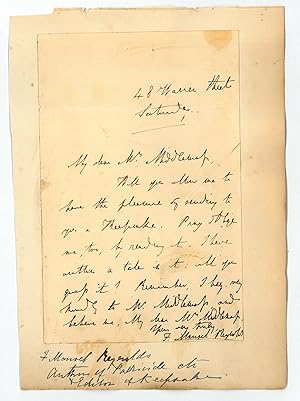 48 Warren Street
Saturday
My dear Mr. Middleship,
Will you allow me to
have the pleasure of sending to
you a Keepsake. Pray oblige
me, too, by reading it. I have
written a tale in it. Will you
guess it? Remember, I beg, very
kindly to Mr. Middleship, and
believe me, My dear Mr. Middleship
Yours very truly
F. Mansel Reynolds
F Mansel Reynolds
Author of Parricide etc
Editor of Keepsake